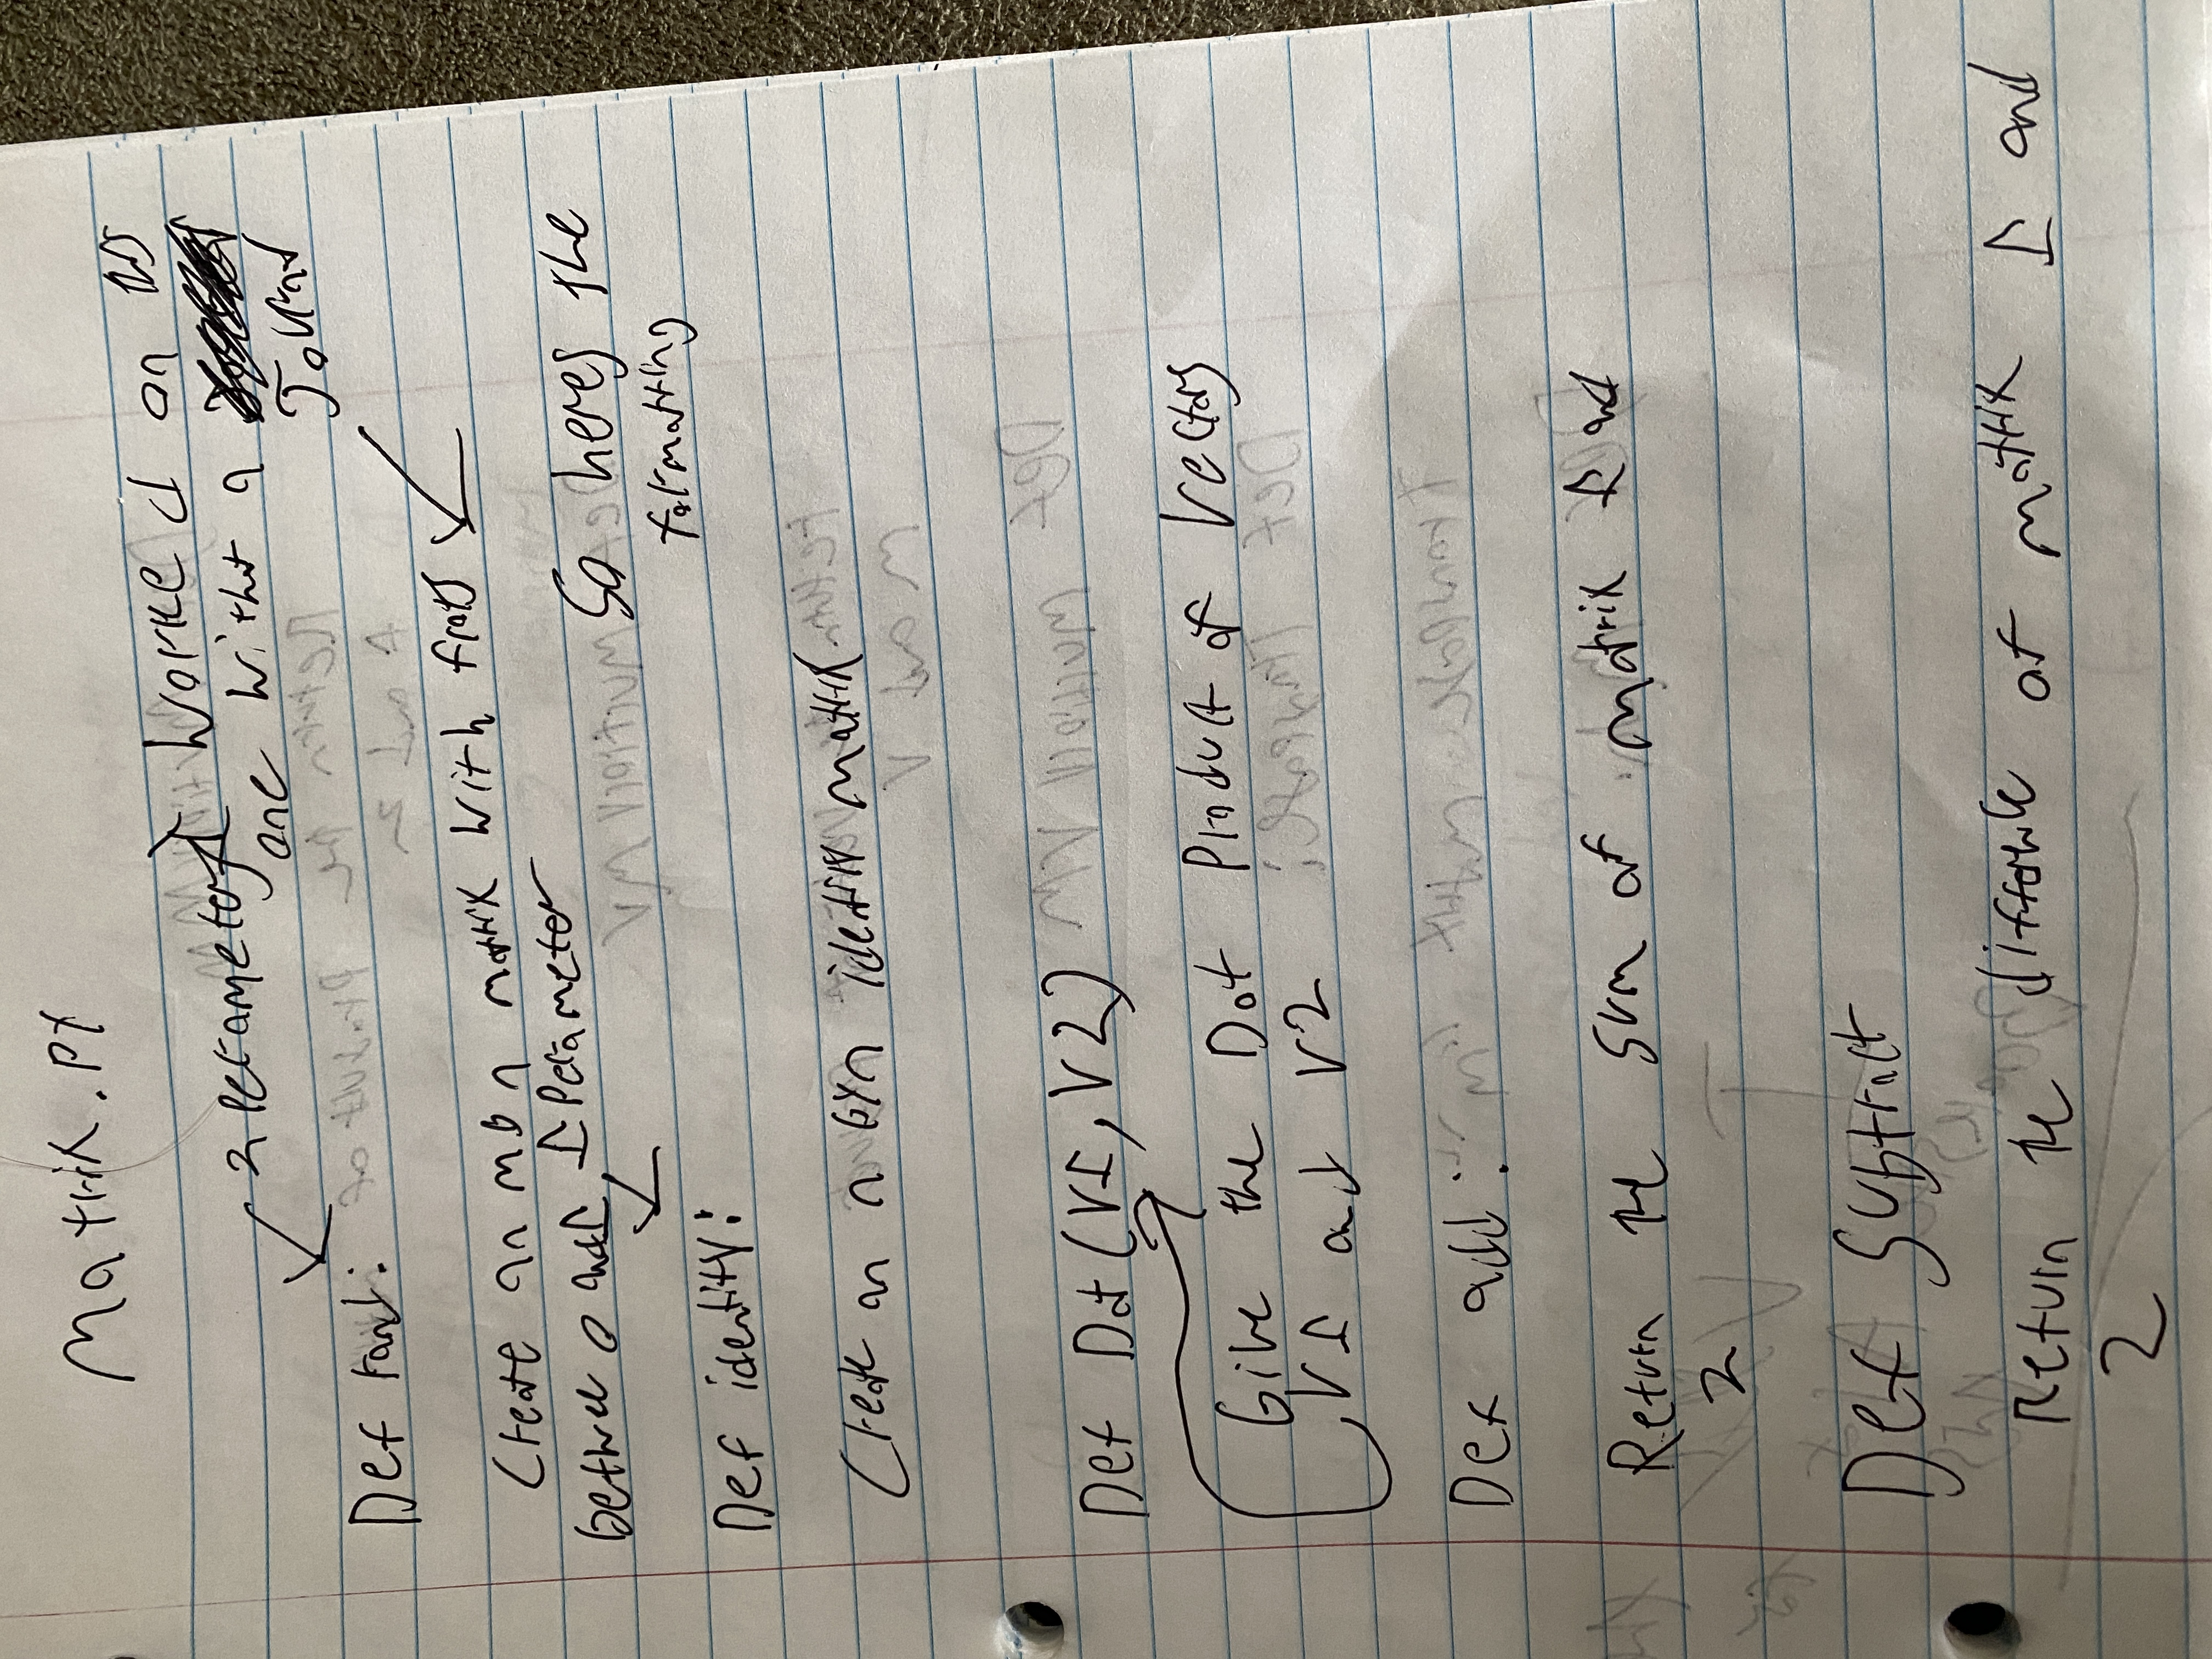 Matrix.py
2 Perameters
I worked on this
one without a
Journal
Def rand:
Create an m by n matrix with floats
between 0 and 1
1 Perameter
So heres the
formatting
Def identity:
Create an n by n identity matrix
Def Dot (V1, V2)
Give the Dot Product of Vectors
V1 and V2
Def add:
Return the sum of matrix 1 and
2
Def Subtract
Return the difference of matrix 1 and
2